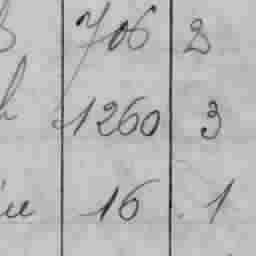 706 2
1260 3
16 1